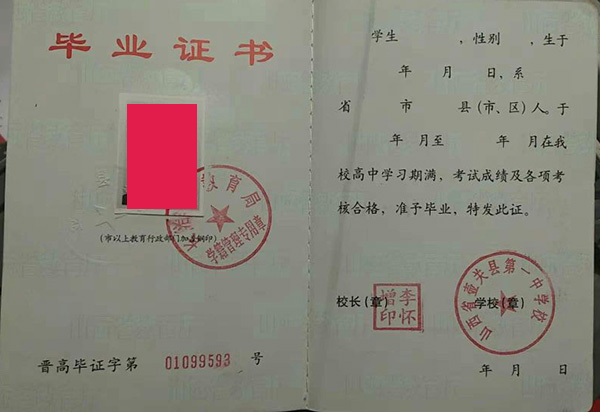 毕业证书
教育局
学籍管理专用章
(市以上教育行政部门加盖钢印)
晋高毕证字第 01099593 号
学生 ,性别 ,生于
年 月 日、系
省 市 县(市、区)人。于
年 月至 年 月在我
校高中学习期满，考试成绩及各项考
核合格，准予毕业，特发此证。
校长(章) 学校(章)
李怀
增印
山西省壶关县第一中学校
年 月 日